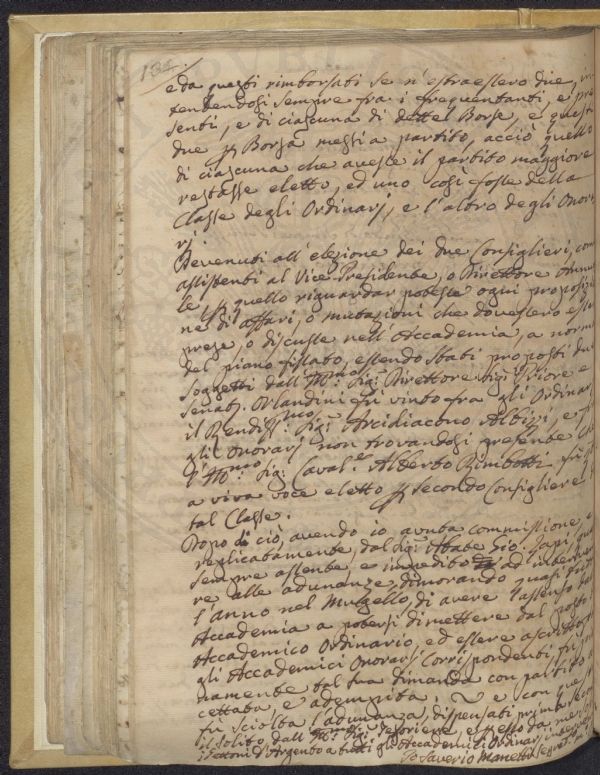 184
e da questi rimborsati se n'estraessero due, in
tendendosi sempre fra i frequentanti, e pre
senti, e di ciascuna di dette Borse, e questi
due p Borsa messi a partito, acciò quello
di ciascuna che avesse il partito maggiore
restasse eletto, ed uno così fosse della
Classe degli Ordinarj, e l'altro degli Onora
rj.
Devenuti all'elezione dei due Consiglieri, com
assistenti al Vice-Presidente, o Direttore Annua
le, p quello riguardar potesse ogni proposizio
ne di affari, o mutazioni che dovessero esser
prese, o discusse nell'Accademia, a norma
del piano fissato, essendo stati proposti due
soggetti dall'Ill.mo Sig. Direttore Sig. Priore e
Senat. Orlandini fù vinto fra gli Ordinarj
il Rendiss.mo Sig. Arcidiacono Albizi, e
gli Onorarj non trovandosi presente che
l'Ill.mo Sig. Caval.e Alberto Rimbotti fù
a viva voce eletto p secondo Consigliere
tal Classe.
Dopo di ciò, avendo io avuta commissione, e
replicatamente, dal Sig. Abate Gio. Lapi, quasi
sempre assente e impedito ad interveni
re alle adunanze, dimorando quasi tutto
l'anno nel Mugello, di avere l'assenso dall'
Accademia a potersi dimettere dal posto
Accademico Ordinario, ed essere ascritto
gli Accademici Onorarj Corrispondenti fù
namente tal sua dimanda con partito
cettata, e adempita. E con questo
fù sciolta l'adunanza, dispensati prima secon
il solito dall'Ill.mo Sig. e da me
i Gettoni d'Argento a tutti gli Accademici Ordinarj
Io Saverio Manetti Segret.